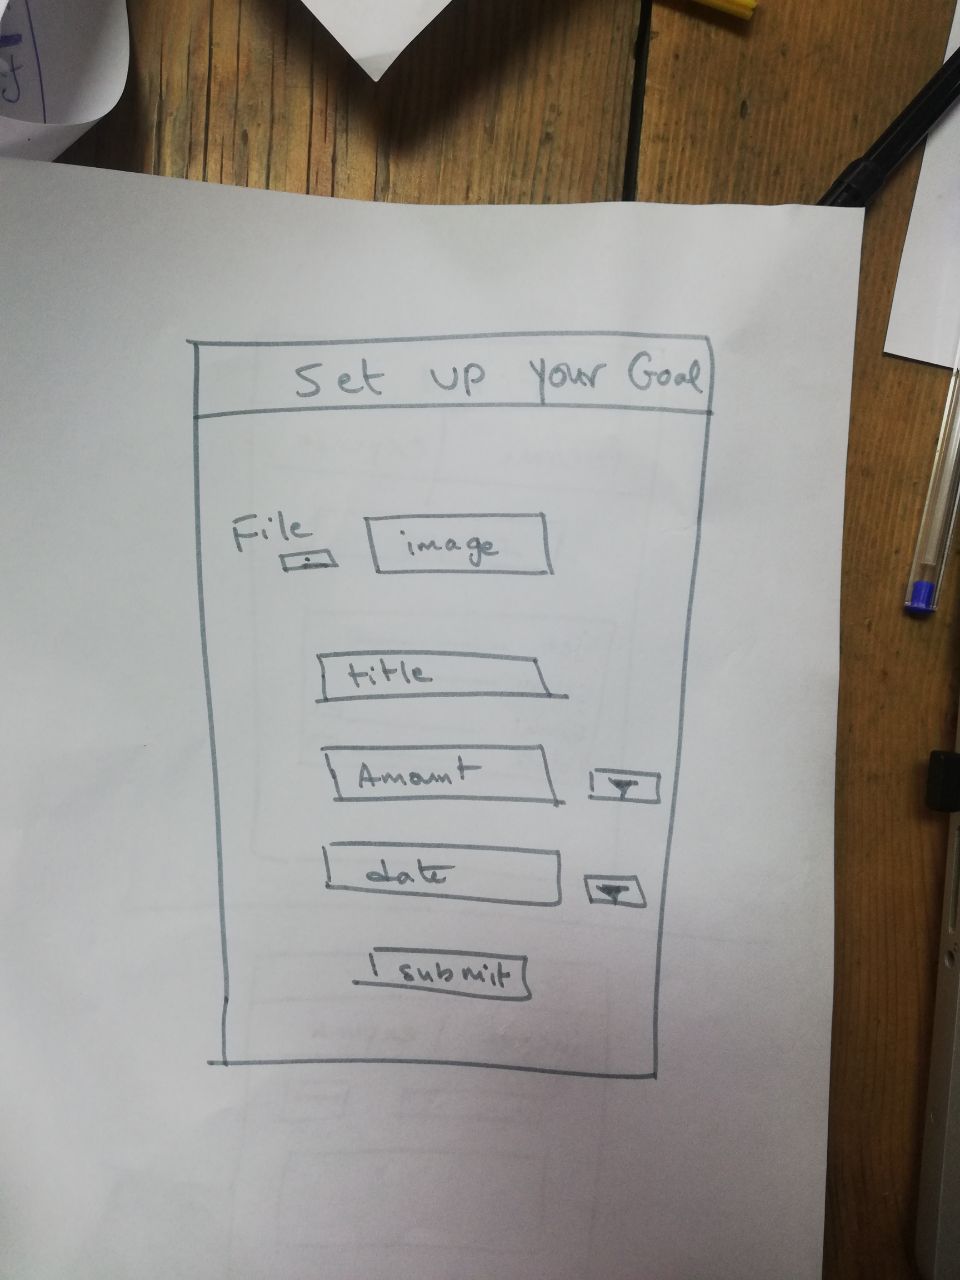 Set up your Goal
File
image
title
Amount
date
submit